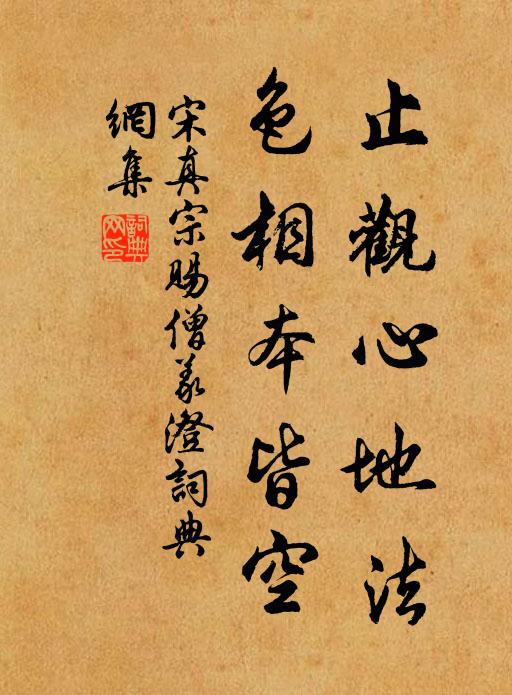 止觀心地法
色相本皆空
宋真宗賜僧義澄詞典
網集
詞典網印